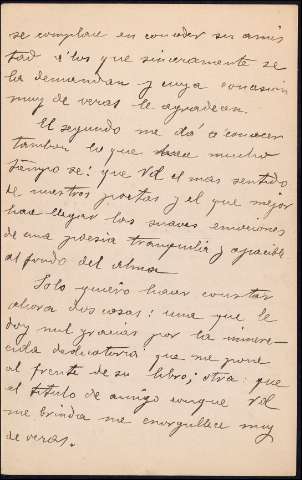 se complace en conceder su amis
tad a los que sinceramente se
la demandan y cuya concesión
muy de veras le agradecen.
El segundo me dá a conocer
tambien lo que hace mucho
tiempo se: que Vd el mas sentido
de nuestros poetas y el que mejor
hace llegar las suaves emociones
de una poesia tranquila y apacible
al fondo del alma
Solo quiero hacer constar
ahora dos cosas: una que le
doy mil gracias por la inmere-
cida dedicatoria que me pone
al frente de su libro; otra: que
el titulo de amigo conque Vd
me brinda me enorgullece muy
de veras.